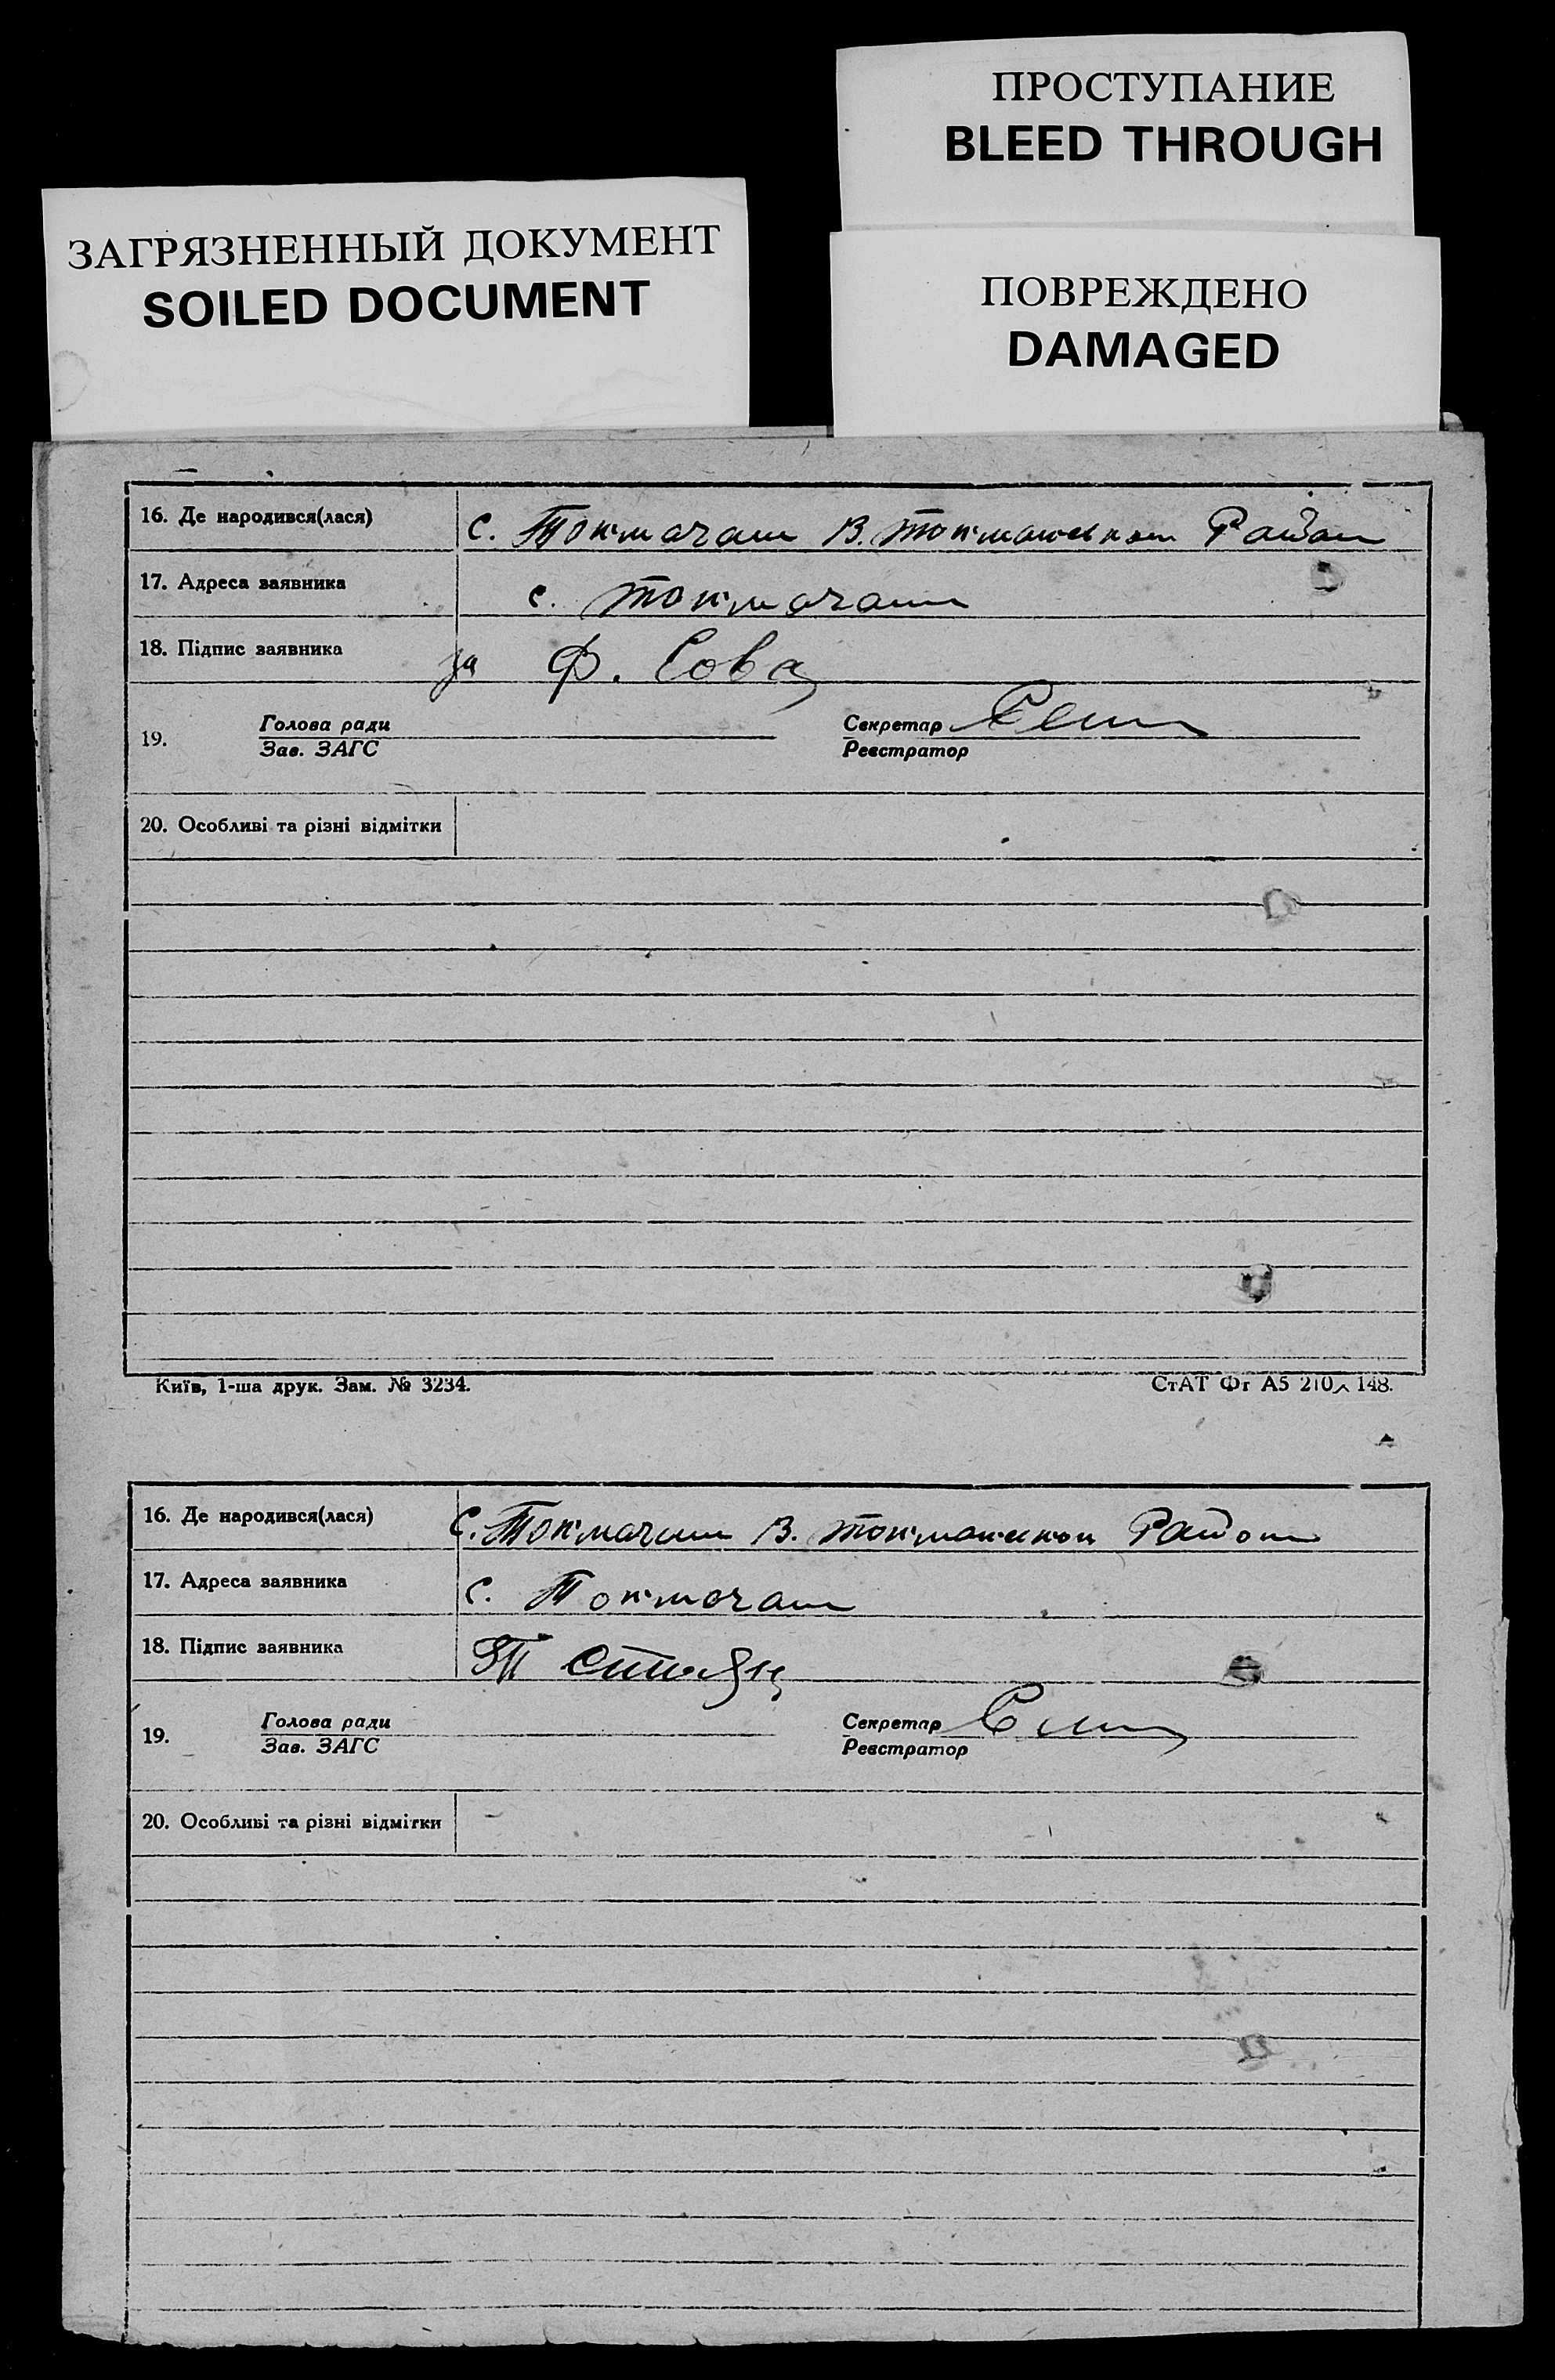 ПРОСТУПАНИЕ
BLEED THROUGH
ЗАГРЯЗНЕННЫЙ ДОКУМЕНТ
SOILED DOCUMENT
ПОВРЕЖДЕНО
DAMAGED
16. Де народився(лася) с. Токмачат В. Токмакском Район
17. Адреса заявника с. Токмачат
18. Підпис заявника за Ф. Сова
19. Голова ради Секретар
Зав. ЗАГС Реєстратор
20. Особливі та різні відмітки
Київ, 1-ша друк. Зам. № 3234. СтАТ Фг А5 210 148.
16. Де народився(лася) С. Токмачат В. Токмакском Район
17. Адреса заявника с. Токмачат
18. Підпис заявника
19. Голова ради Секретар
Зав. ЗАГС Реєстратор
20. Особливі та різні відмітки